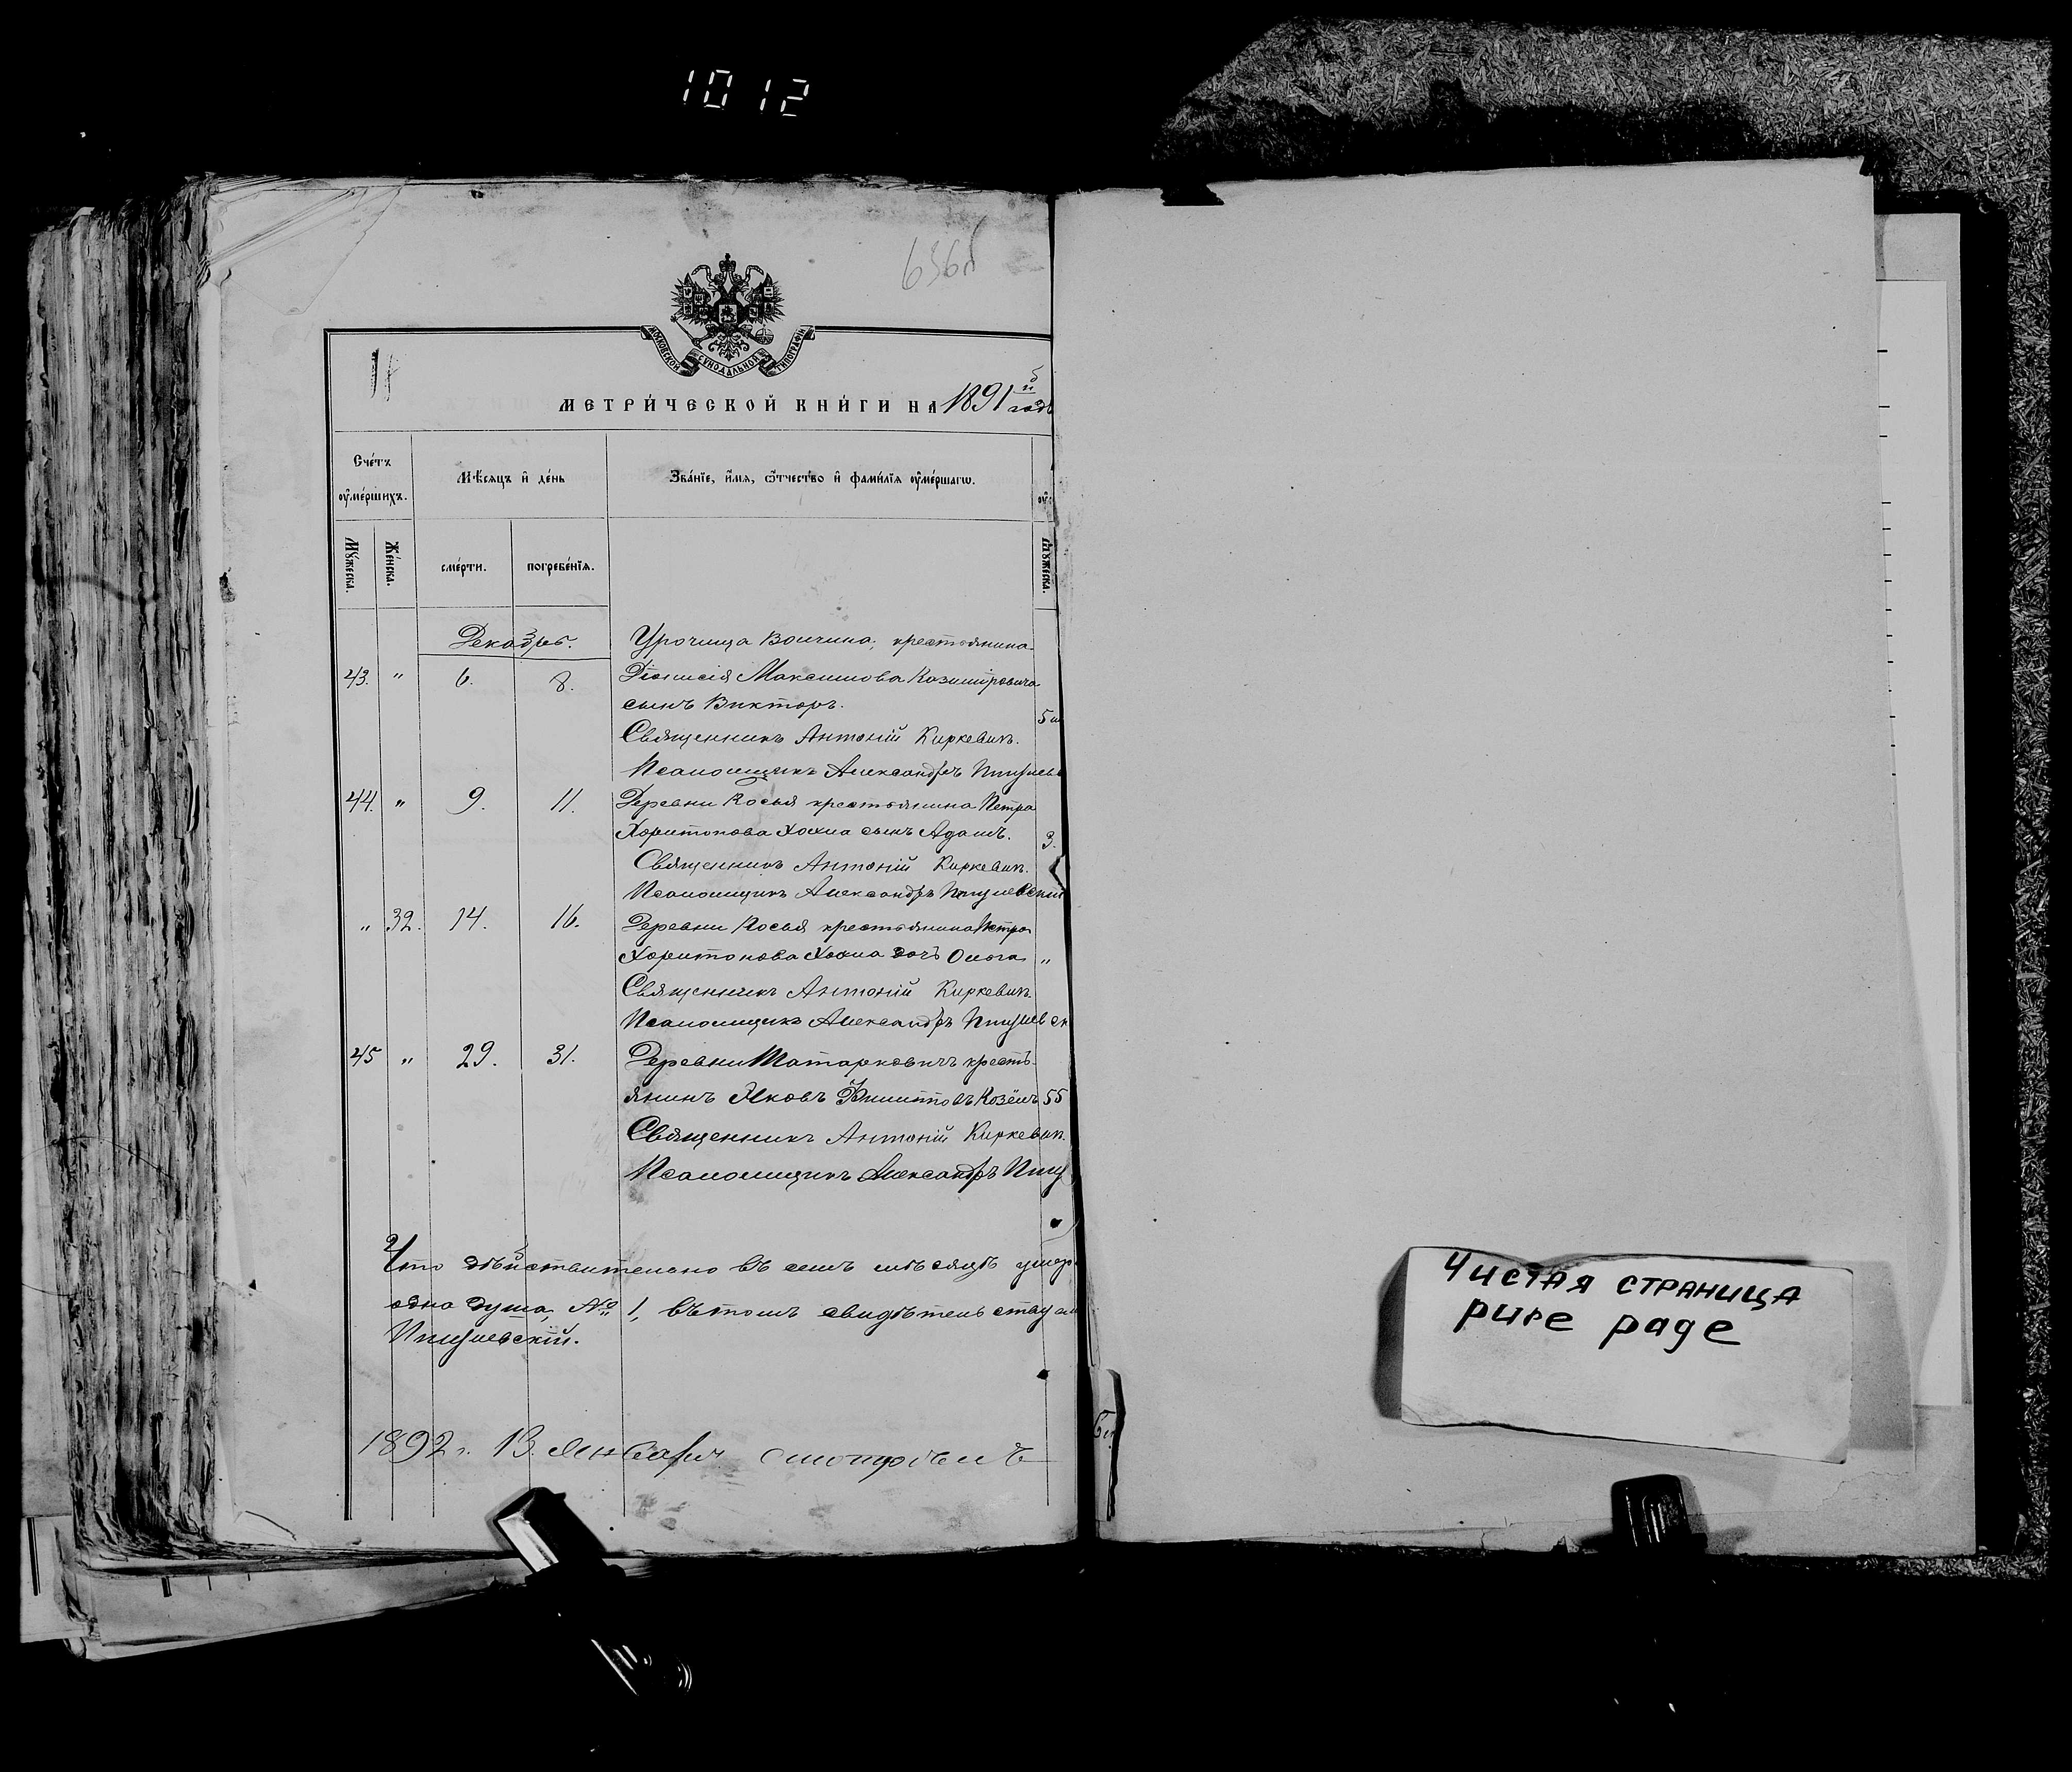 1012
636об
МОСКОВСКОЙ СѴНОДАЛЬНОЙ ТИПОГРАФІИ
МЕТРИ́ЧЕСКОЙ КНИ́ГИ НА 1891й годъ
Сче́тъ ᲂу҆ме́ршихъ.
Мѣ́сяцъ и҆ де́нь
Зва́нїе, и҆́мѧ, ѻ҆́тчество и҆ фами́лїѧ ᲂу҆ме́ршагѡ.
Мꙋ́жеска.
Же́нска.
сме́рти.
погребе́нїѧ.
Мꙋ́жеска.
Декабрь.
Урочища крестьянина
43. " 6. 8. Діонисія Максимова Казиміровича
сынъ Викторъ.
5
Священникъ Антоній Киркевичъ.
Псаломщикъ Александръ
44. " 9. 11. Деревни Косыя крестьянина Петра
Харитонова Хохла сынъ Адамъ. 3.
Священникъ Антоній Киркевичъ.
Псаломщикъ Александръ
" 32. 14. 16. Деревни Косыя крестьянина Петра
Харитонова Хохла дочь Ольга "
Священникъ Антоній Киркевичъ.
Псаломщикъ Александръ
45 " 29. 31. Деревни Татарковичъ кресть-
янинъ Яковъ Филипповъ Козёлъ 55
Священникъ Антоній Киркевичъ.
Псаломщикъ Александръ
Что дѣйствительно въ семъ мѣсяцѣ умер
одна душа, № 1, въ томъ свидѣтельствую
1892 г. 13. Января смотрѣлъ
Чистая страница
pure page